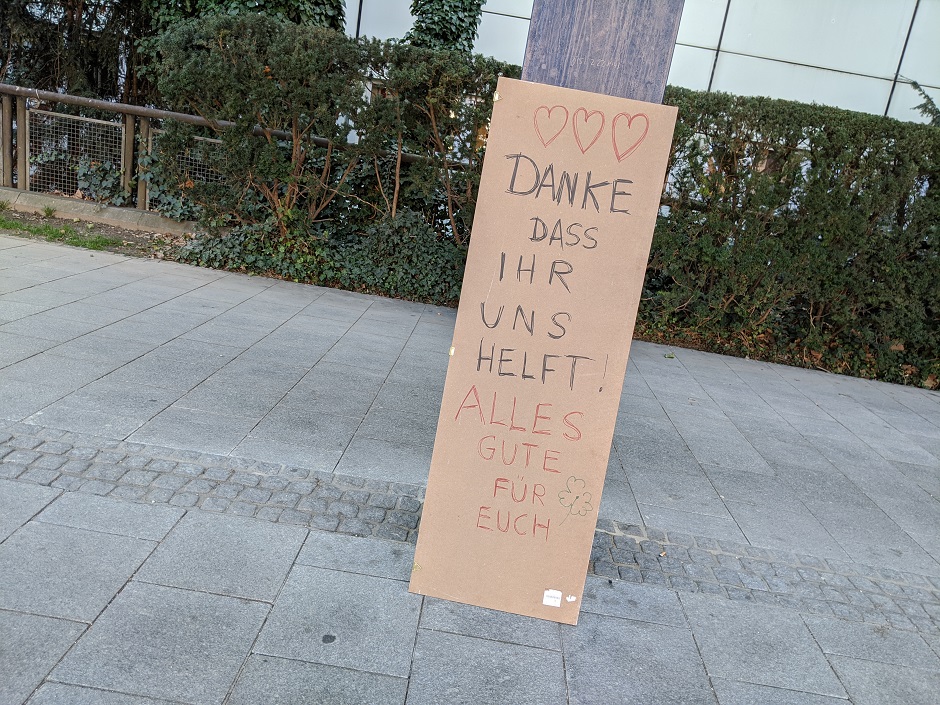 DANKE
DASS
IHR
UNS
HELFT!
ALLES
GUTE
FÜR
EUCH